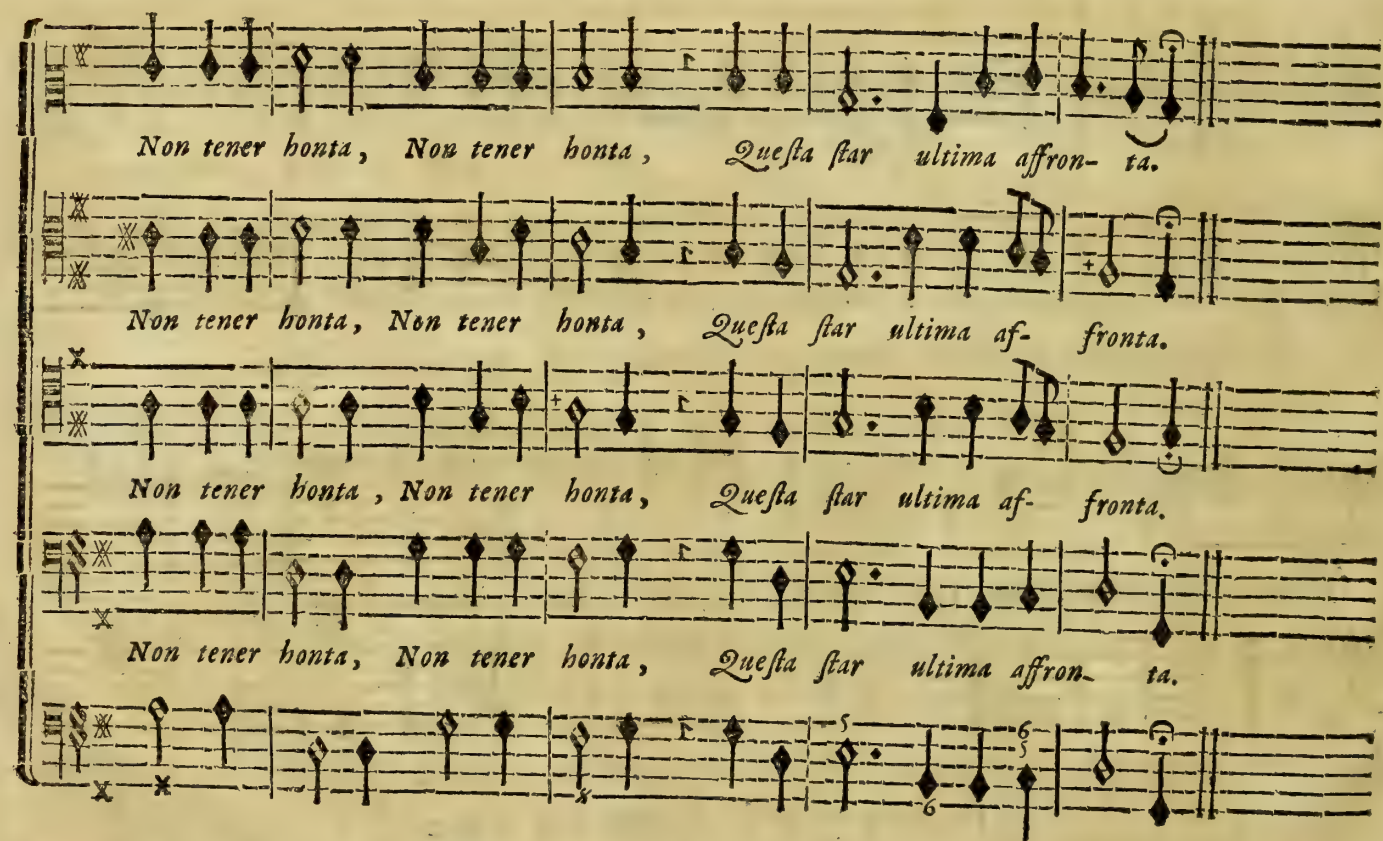 Non tener honta, Non tener honta, Queſta ſtar ultima affron- ta.
Non tener honta, Non tener honta, Queſta ſtar ultima af- fronta.
Non tener honta, Non tener honta, Queſta ſtar ultima af- fronta.
Non tener honta, Non tener honta, Queſta ſtar ultima affron- ta.
5 6
5
6